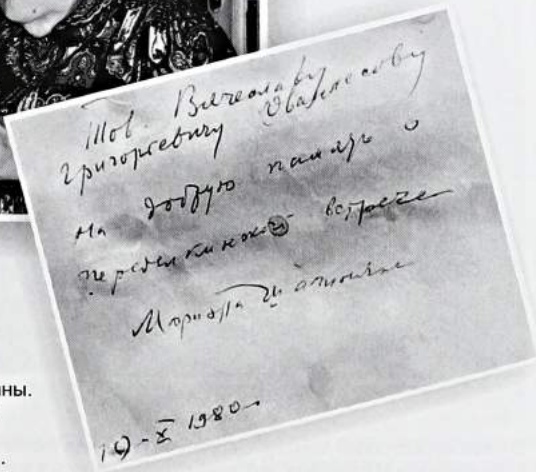 Тов. Вячеславу
Григорьевичу Ованесову
На добрую память о
переделкинской встрече
Мариэтта Шагинян
19-X 1980
ны.